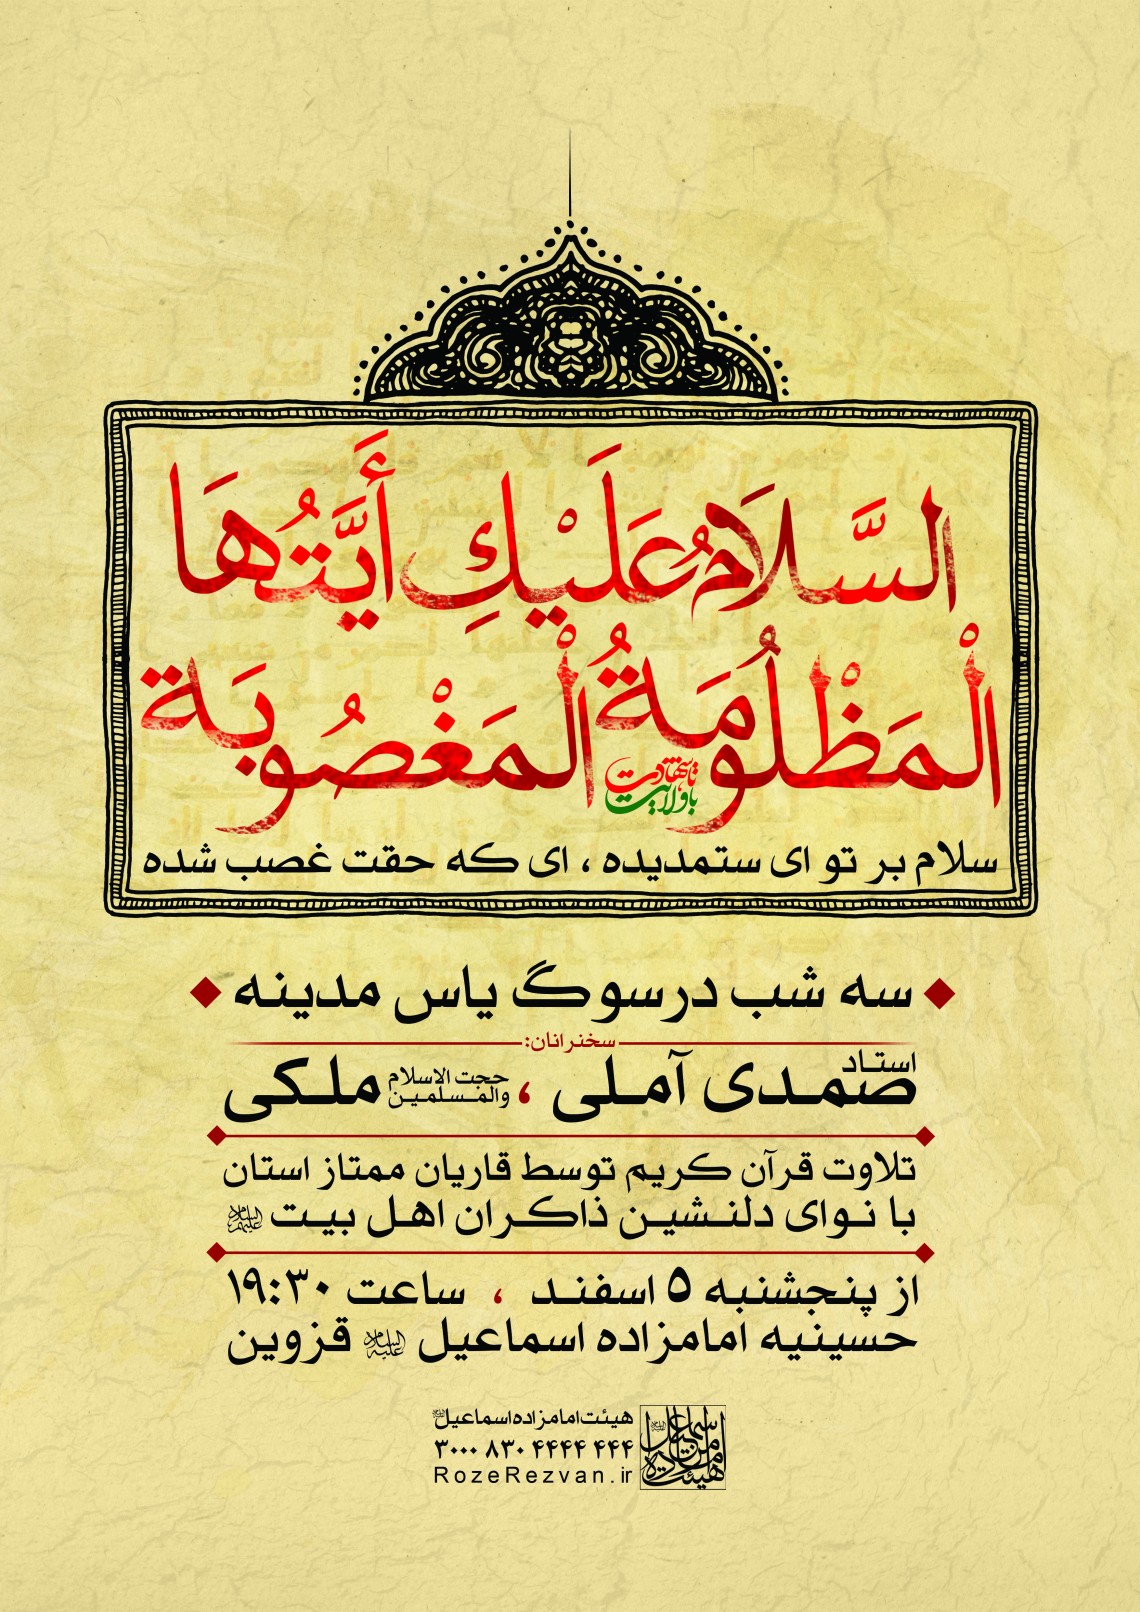 السَّلَامُ عَلَيْكِ أَيَّتُهَا
الْمَظْلُومَةُ الْمَغْصُوبَة
با ولایت
تا شهادت
سلام بر تو ای ستمدیده ، ای که حقت غصب شده
سه شب در سوگ یاس مدینه
سخنرانان:
استاد صمدی آملی ، حجت الاسلام والمسلمین ملکی
تلاوت قرآن کریم توسط قاریان ممتاز استان
با نوای دلنشین ذاکران اهل بیت علیهم السلام
از پنجشنبه ۵ اسفند ، ساعت ۱۹:۳۰
حسینیه امامزاده اسماعیل علیه السلام قزوین
هیئت امامزاده اسماعیل
۳۰۰۰ ۸۳۰ ۴۴۴۴ ۴۴۴
RozeRezvan.ir
هیئت امامزاده اسماعیل